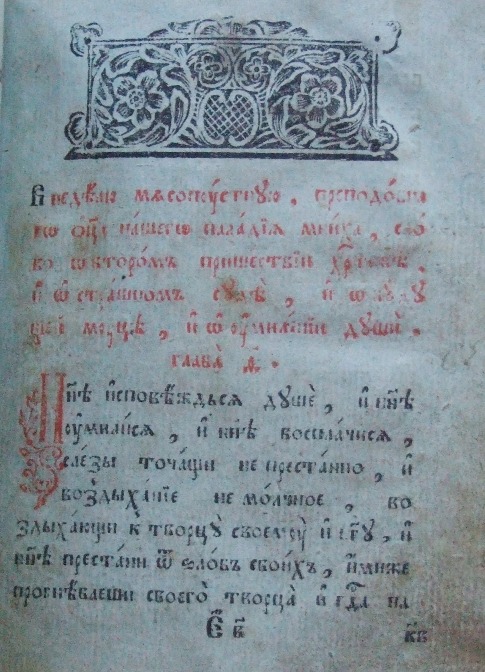 В неделю мѧсопꙋ́стнꙋю, преподо́бна
гѡ ѻц҃а̀ на́шегѡ палла́дїѧ мни́ха, сло́
во ѡ второ́мъ прише́ствїи хр҃то́вѣ,
и҆ ѡ҆ стра́шномъ сꙋдѣ̀, и҆ ѡ бꙋ́дꙋ
щей мꙋ́цѣ, и҆ ѡ҆ ᲂу҆миле́нїи дꙋшѝ.
глава̀ а҃.
Нн҃ѣ и҆сповѣ́ждьсѧ дꙋшѐ, и҆ нн҃ѣ
ᲂу҆мили́сѧ, и҆ нн҃ѣ восплачисѧ,
сле́зы точа́щи непреста́нно, и҆
воздыха́нїе немо́лчное, во
здыха́ющи к творцꙋ̀ своемꙋ̀ и҆ бг҃ꙋ, и҆
нн҃ѣ преста́ни ѿ ѕло́бъ свои́хъ, и҆́миже
прогнѣ́вавши своего̀ творца̀ и҆ гд҃а на
в҃
кв